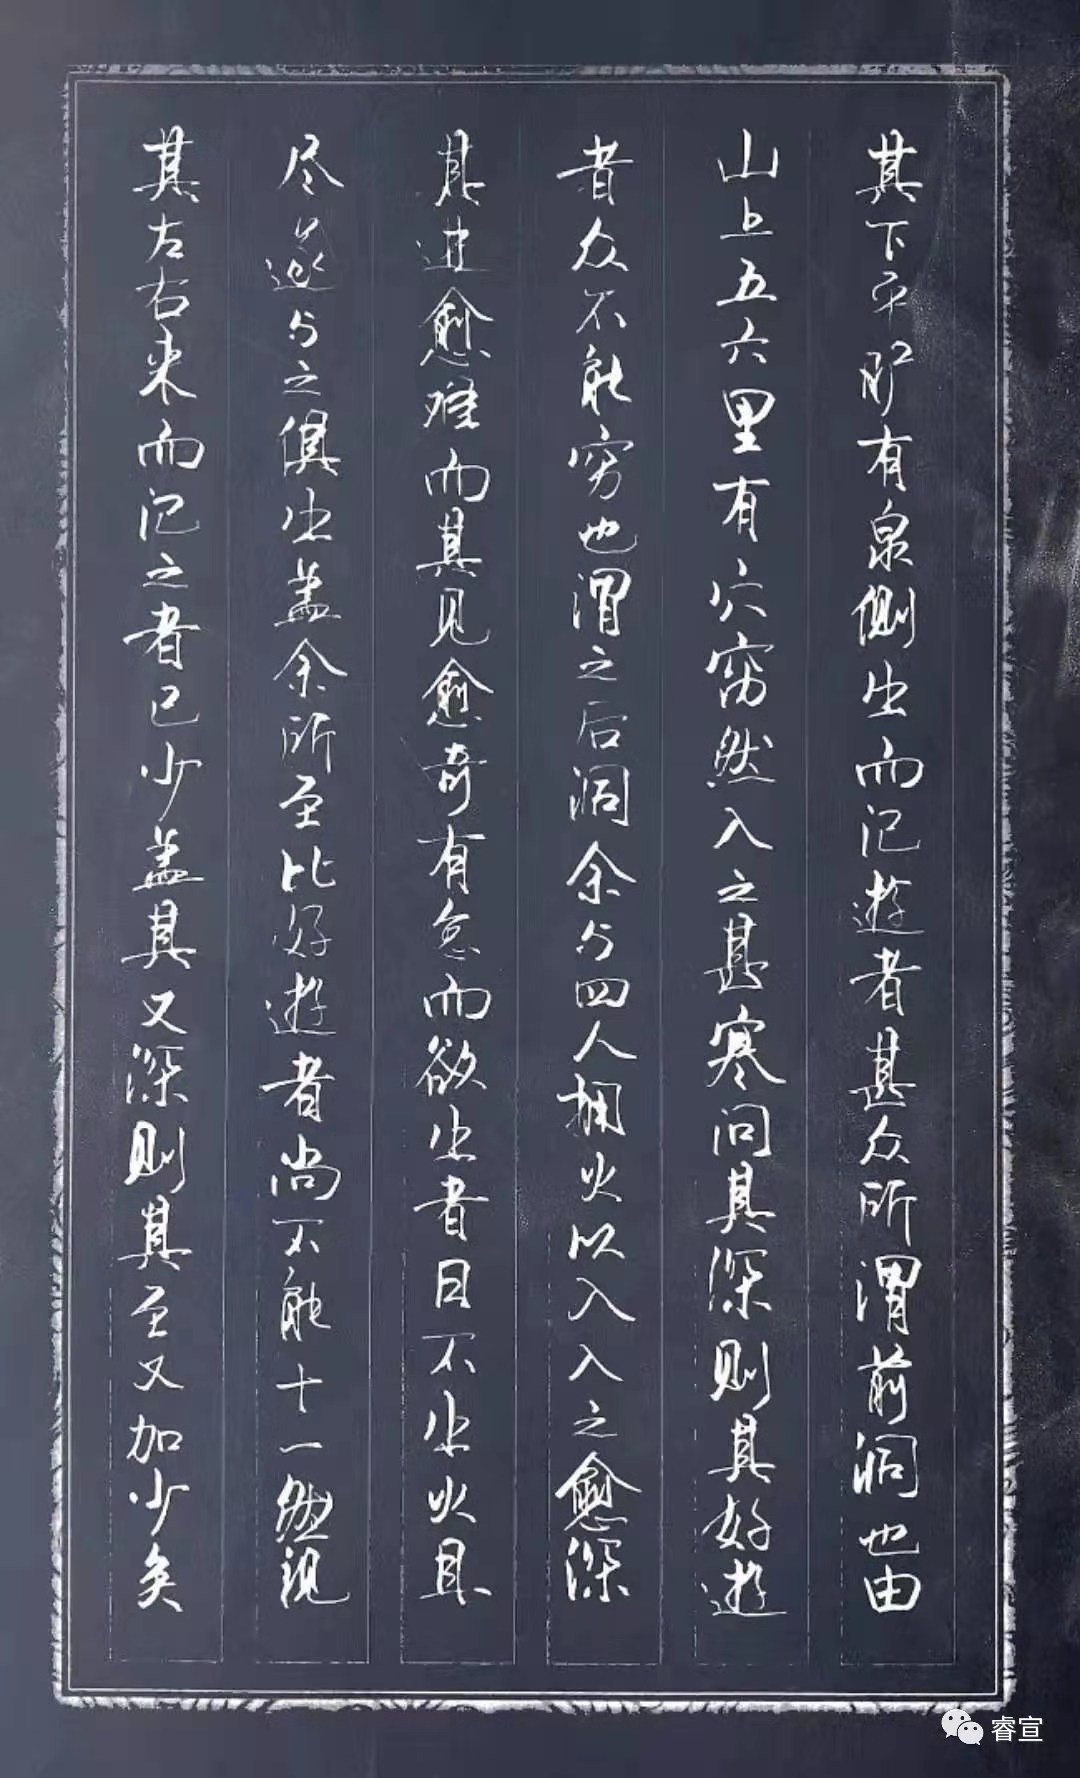 其下平旷有泉侧出而记遊者甚众所谓前洞也由
山上五六里有穴窈然入之甚寒问其深则其好遊
者众不能穷也谓之后洞余与四人拥火以入入之愈深
其进愈难而其见愈奇有怠而欲出者曰不出火且
尽遂与之俱出盖余所至比好遊者尚不能十一然视
其左右来而记之者已少盖其又深则其至又加少矣
睿宣